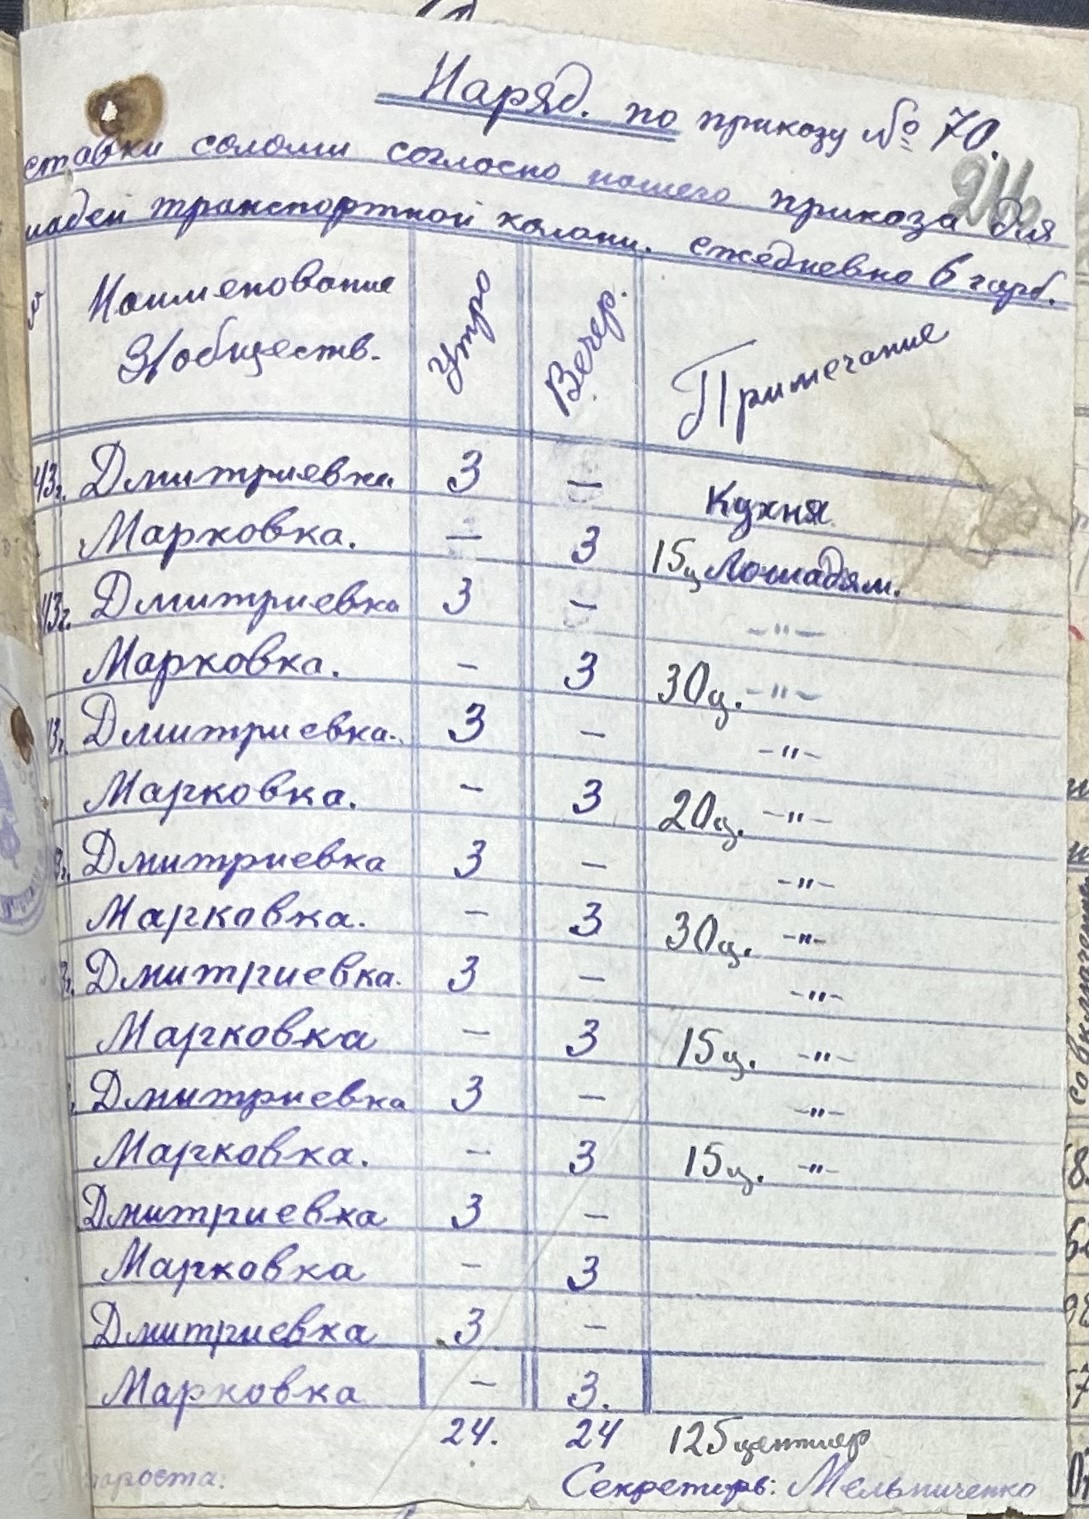 Наряд. по приказу № 70.
ставки соломи согласно нашего приказа для
шадей транспортной калони. ежедневно 6 гарб.
Наименование З/обществ. Утро Вечер. Примечание
43г. Дмитриевка 3 – Кухня
Марковка. – 3 15ц Лошадям.
43г. Дмитриевка 3 – –"–
Марковка. – 3 30ц. –"–
3г. Дмитриевка. 3 – –"–
Марковка. – 3 20ц. –"–
3г. Дмитриевка 3 – –"–
Марковка. – 3 30ц. –"–
3г. Дмитриевка. 3 – –"–
Марковка – 3 15ц. –"–
Дмитриевка 3 – –"–
Марковка. – 3 15ц. –"–
Дмитриевка 3 –
Марковка – 3
Дмитриевка 3 –
Марковка – 3.
24. 24 125 центнер
тароста: Секретарь: Мельниченко